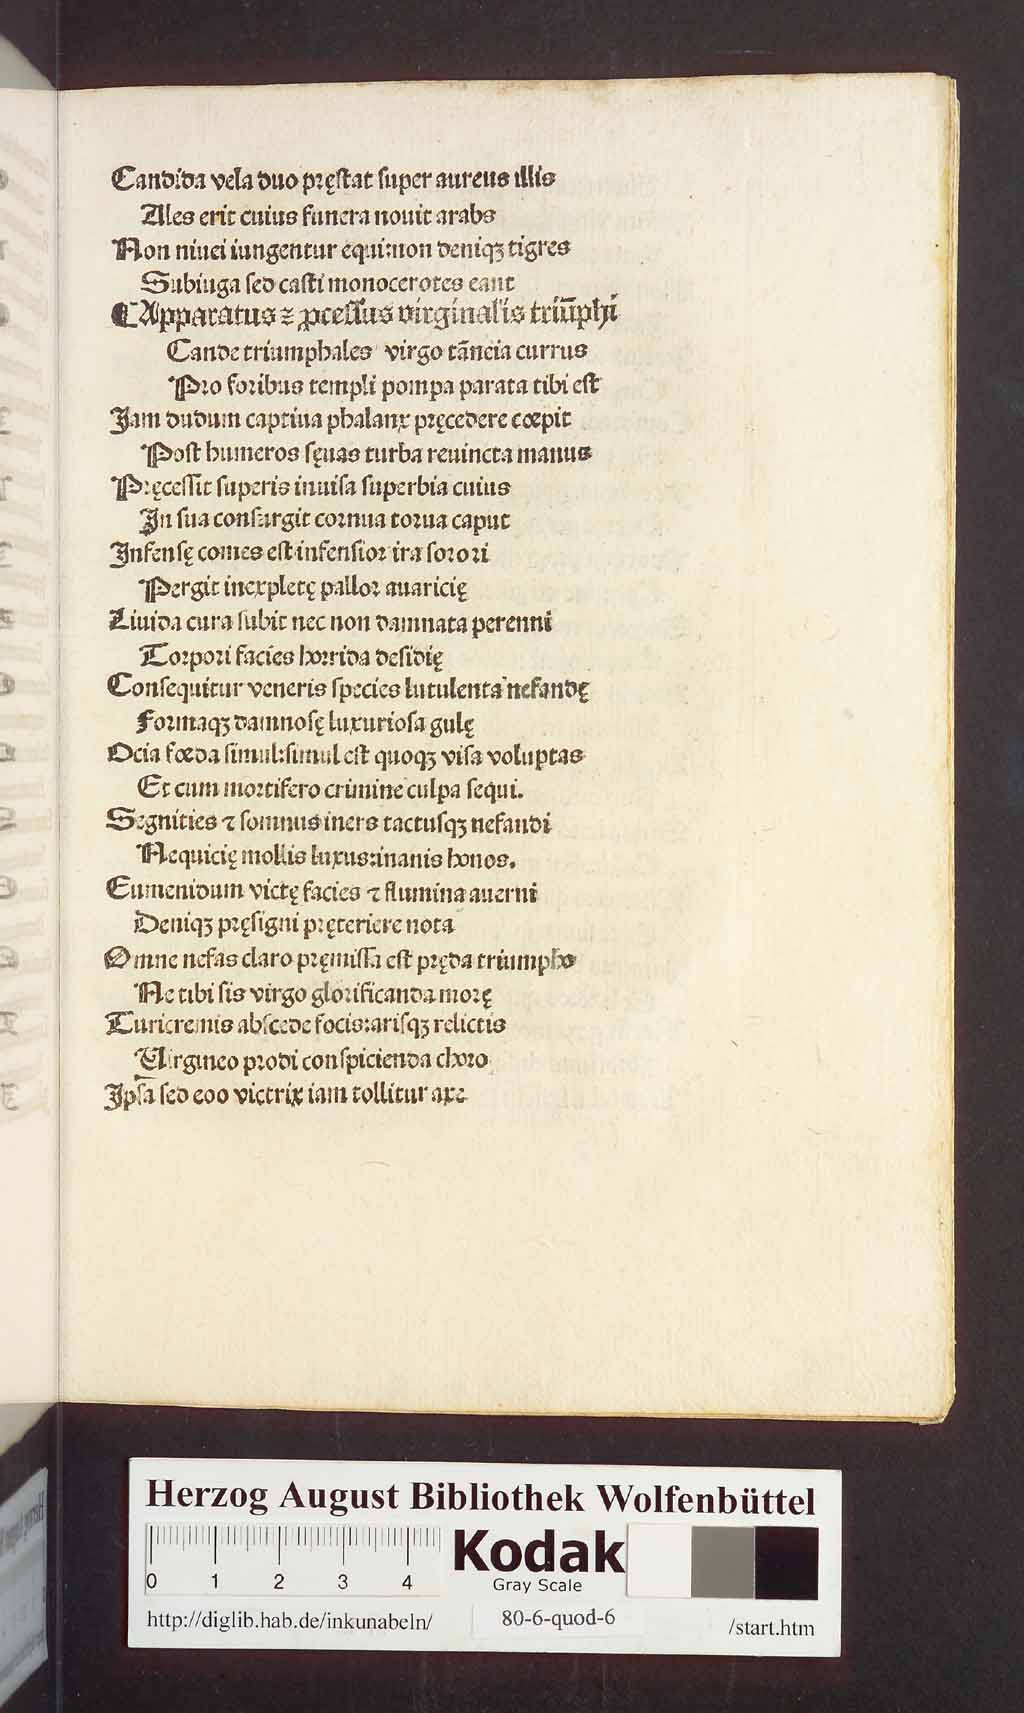 Candida vela duo pręstat super aureus illis
Ales erit cuius funera nouit arabs
Non niuei iungentur equi:non deniqꝫ tigres
Subiuga sed casti monocerotes eant
¶Apparatus ⁊ ꝓcessus virginalis triūphi
Cande triumphales virgo tāncia currus
Pro foribus templi pompa parata tibi est
Jam dudum captiua phalanx pręcedere cœpit
Post humeros sęuas turba reuincta manus
Pręcessit superis inuisa superbia cuius
In sua consurgit cornua torua caput
Infensę comes est infensior ira sorori
Pergit inexpletę pallor auaricię
Liuida cura subit nec non damnata perenni
Torpori facies horrida desidię
Consequitur veneris species lutulenta nefandę
Formaqꝫ damnosę luxuriosa gulę
Ocia fœda simul:simul est quoqꝫ visa voluptas
Et cum mortifero crimine culpa sequi.
Segnities ⁊ somnus iners tactusqꝫ nefandi
Nequicię mollis luxus:inanis honos.
Eumenidum victę facies ⁊ flumina auerni
Deniqꝫ pręsigni pręteriere nota
Omne nefas claro pręmissa est pręda triumpho
Ne tibi sis virgo glorificanda morę
Turicremis abscede focis:arisqꝫ relictis
Virgineo prodi conspicienda choro
Ipsa sed eoo victrix iam tollitur axe
Herzog August Bibliothek Wolfenbüttel
0 1 2 3 4
Kodak
Gray Scale
http://diglib.hab.de/inkunabeln/ 80-6-quod-6 /start.htm